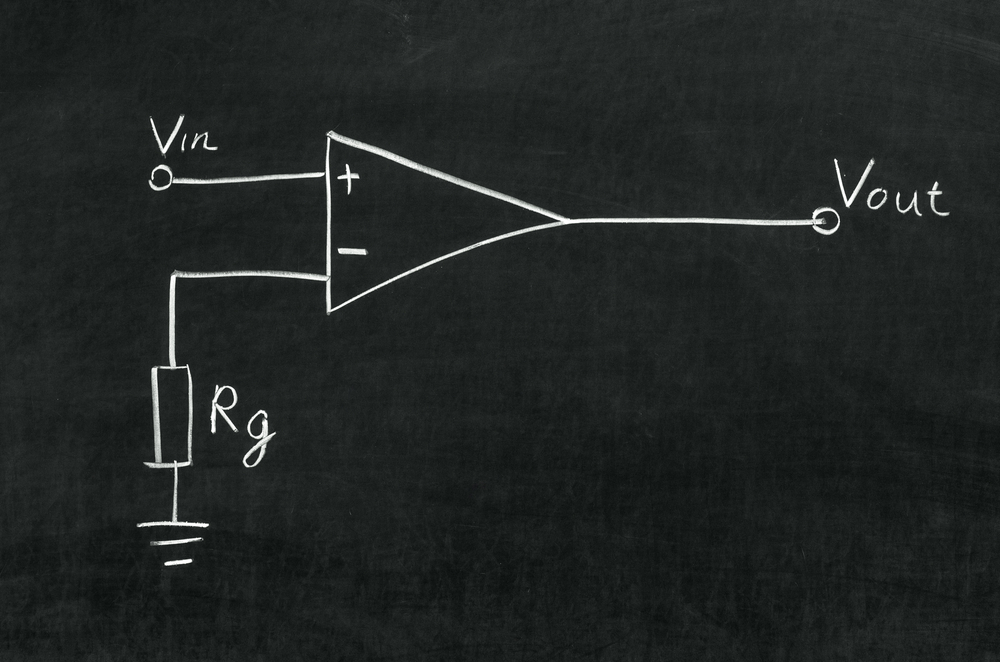 Vin
+
Vout
−
Rg